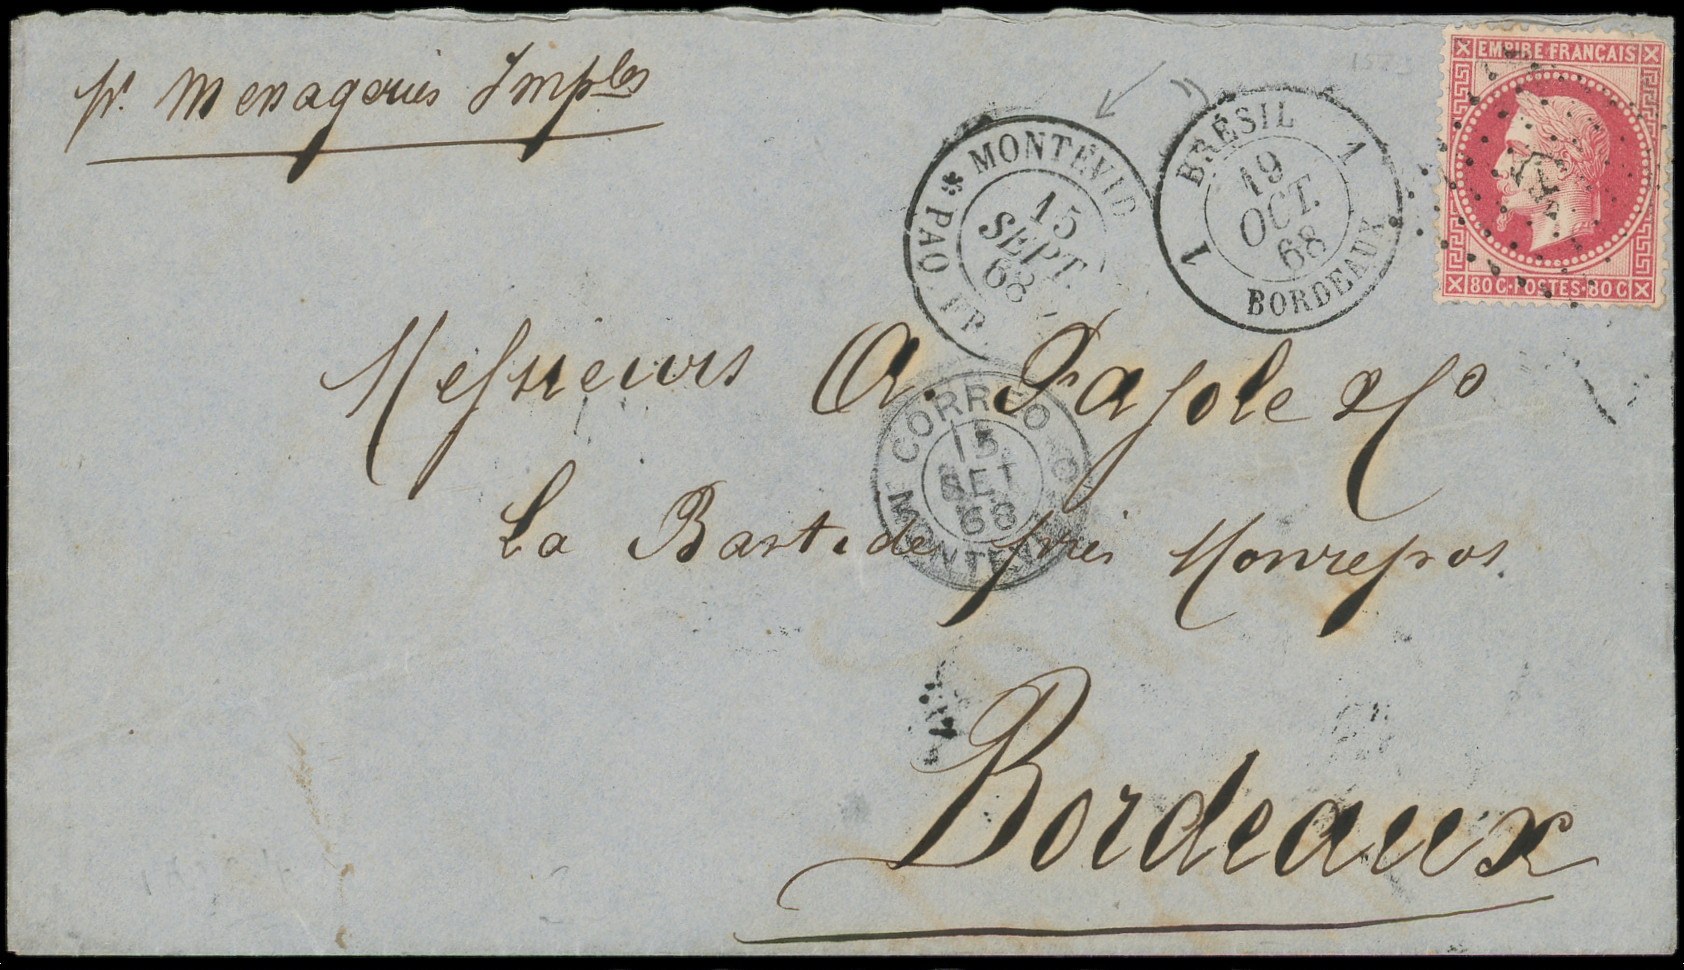 pr. Messageries Imples
EMPIRE FRANÇAIS
80 C · POSTES · 80 C
MONTEVID
PAQ. FR.
15
SEPT.
68
BRÉSIL
1 1
19
OCT.
68
BORDEAUX
Messieurs A. Fajole & Co
CORREO
15
SET
68
MONTEV
La Bastide près Monrepos.
Bordeaux